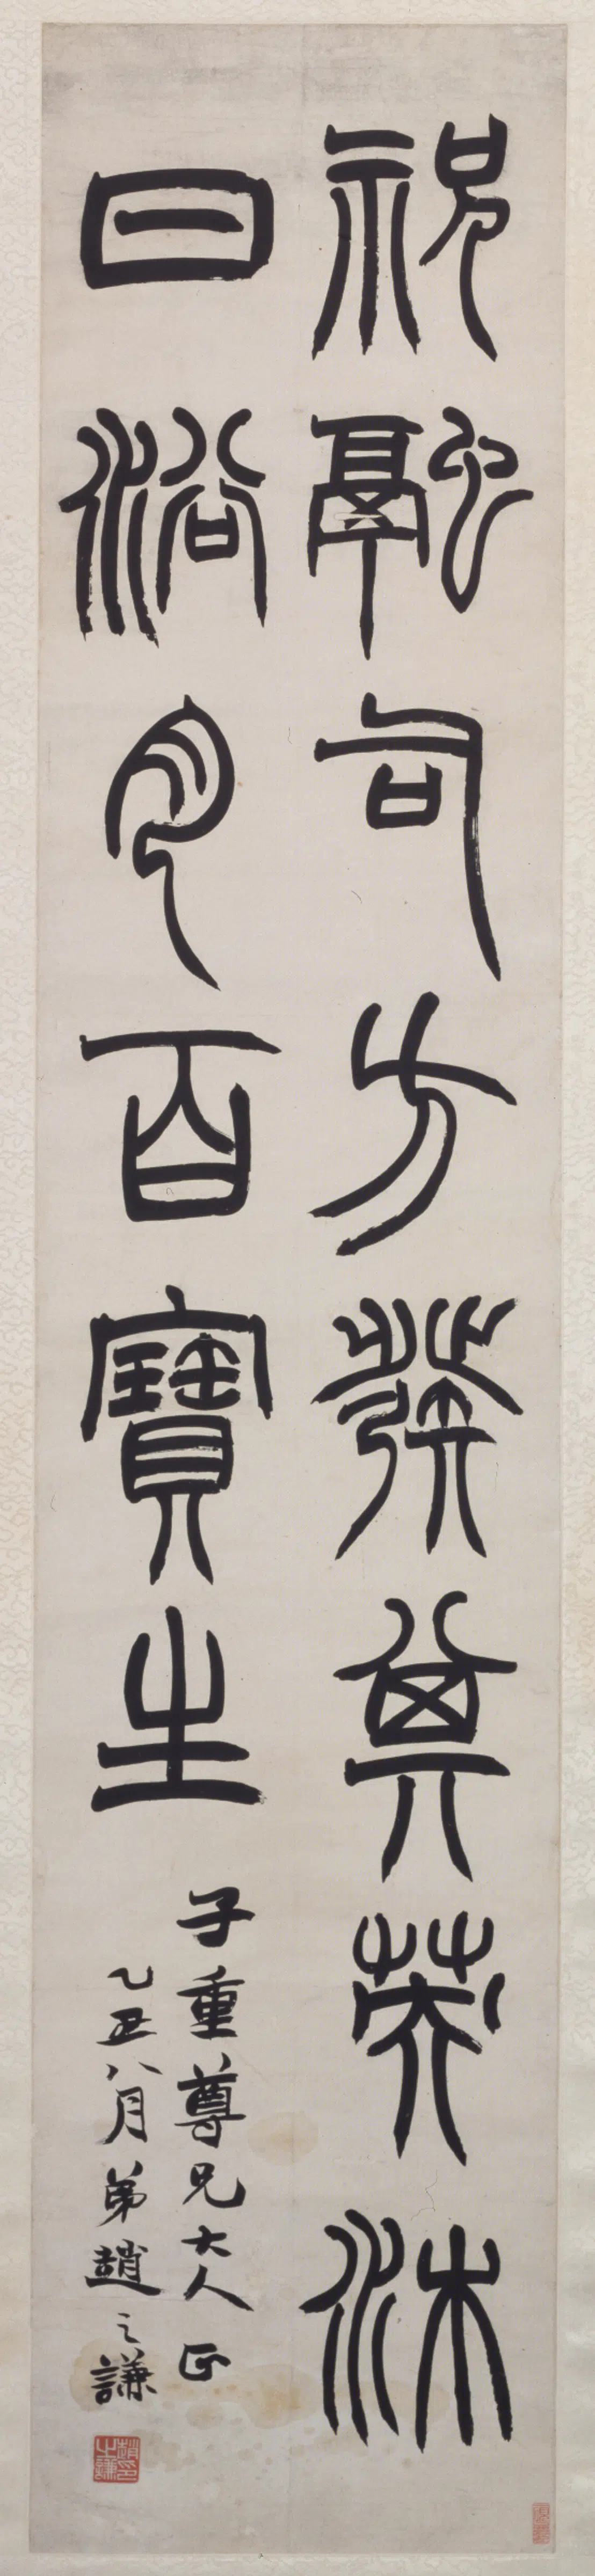 祝融司方發其英沐
日浴月百寶生
子重尊兄大人正
乙丑八月弟趙之謙
趙印之謙